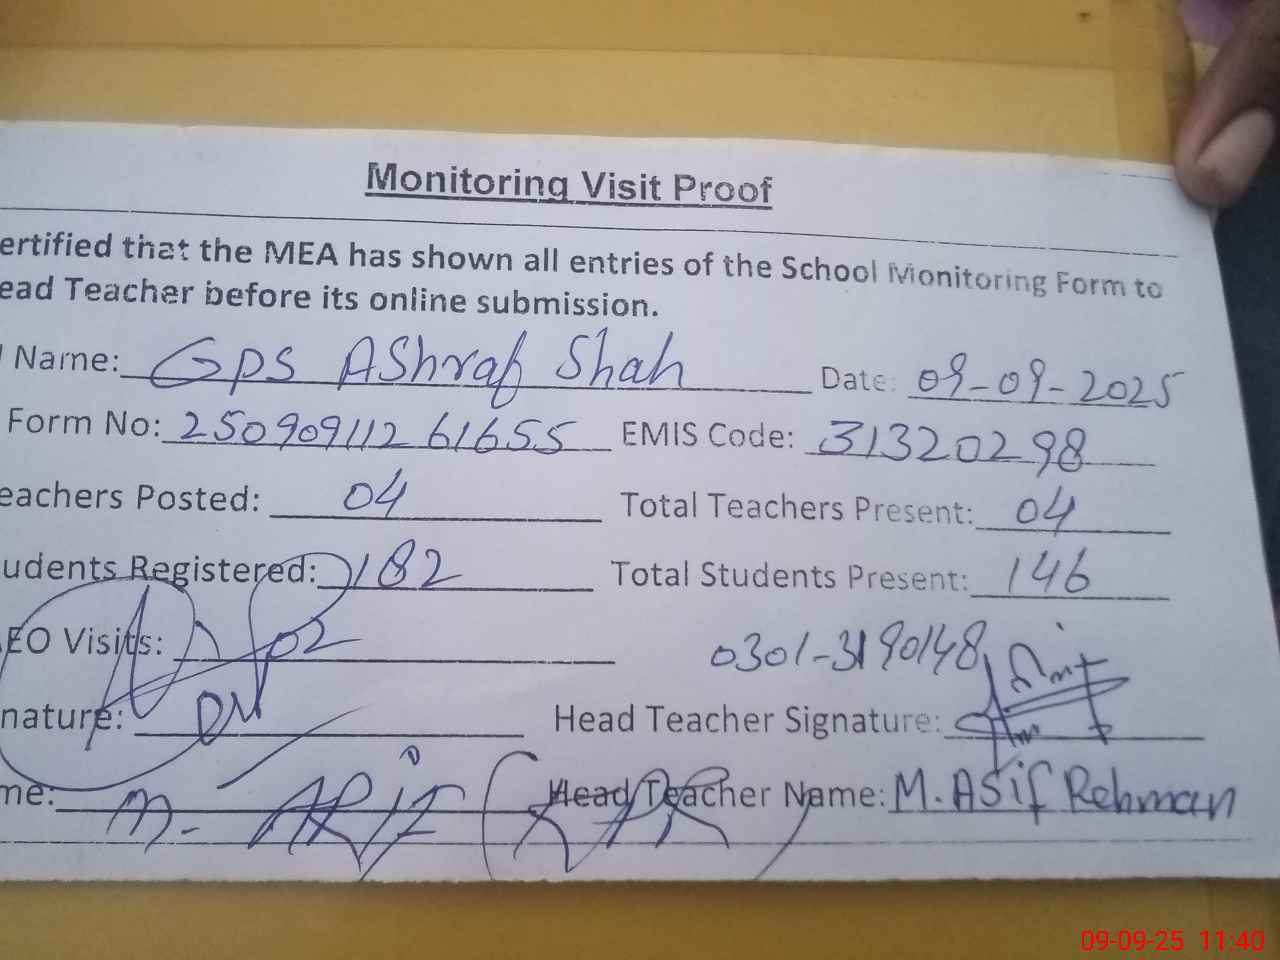 Monitoring Visit Proof
ertified that the MEA has shown all entries of the School Monitoring Form to
ead Teacher before its online submission.
Name: GPS AShraf Shah Date: 09-09-2025
Form No: 25090911261655 EMIS Code: 31320298
eachers Posted: 04 Total Teachers Present: 04
udents Registered: 182 Total Students Present: 146
EO Visits: 02 0301-3190148
nature: Head Teacher Signature:
me: M. Head Teacher Name: M. ASif Rehman
09-09-25 11:40